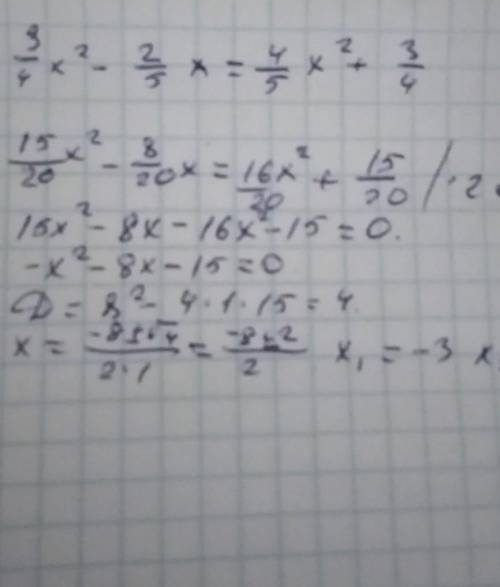 3/4 x² - 2/5 x = 4/5 x² + 3/4
15/20 x² - 8/20 x = 16x²/20 + 15/20 / · 2
15x² - 8x - 16x² - 15 = 0.
-x² - 8x - 15 = 0
D = 8² - 4 · 1 · 15 = 4.
x = -8±√4 / 2·1 = -8±2 / 2 x₁ = -3 x